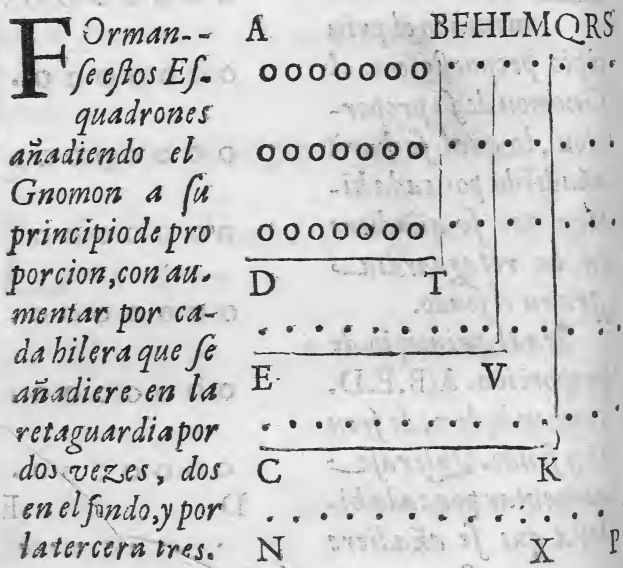 FOrman--
ſe eſtos Eſ-
quadrones
añadiendo el
Gnomon a ſu
principio de pro
porcion, con au-
mentar por ca-
da hilera que ſe
añadiere en la
retaguardia por
dos vezes, dos
en el fondo, y por
la tercera tres.
A BFHLMQRS
ooooooo
ooooooo
ooooooo
D T
E V
C K
N X P